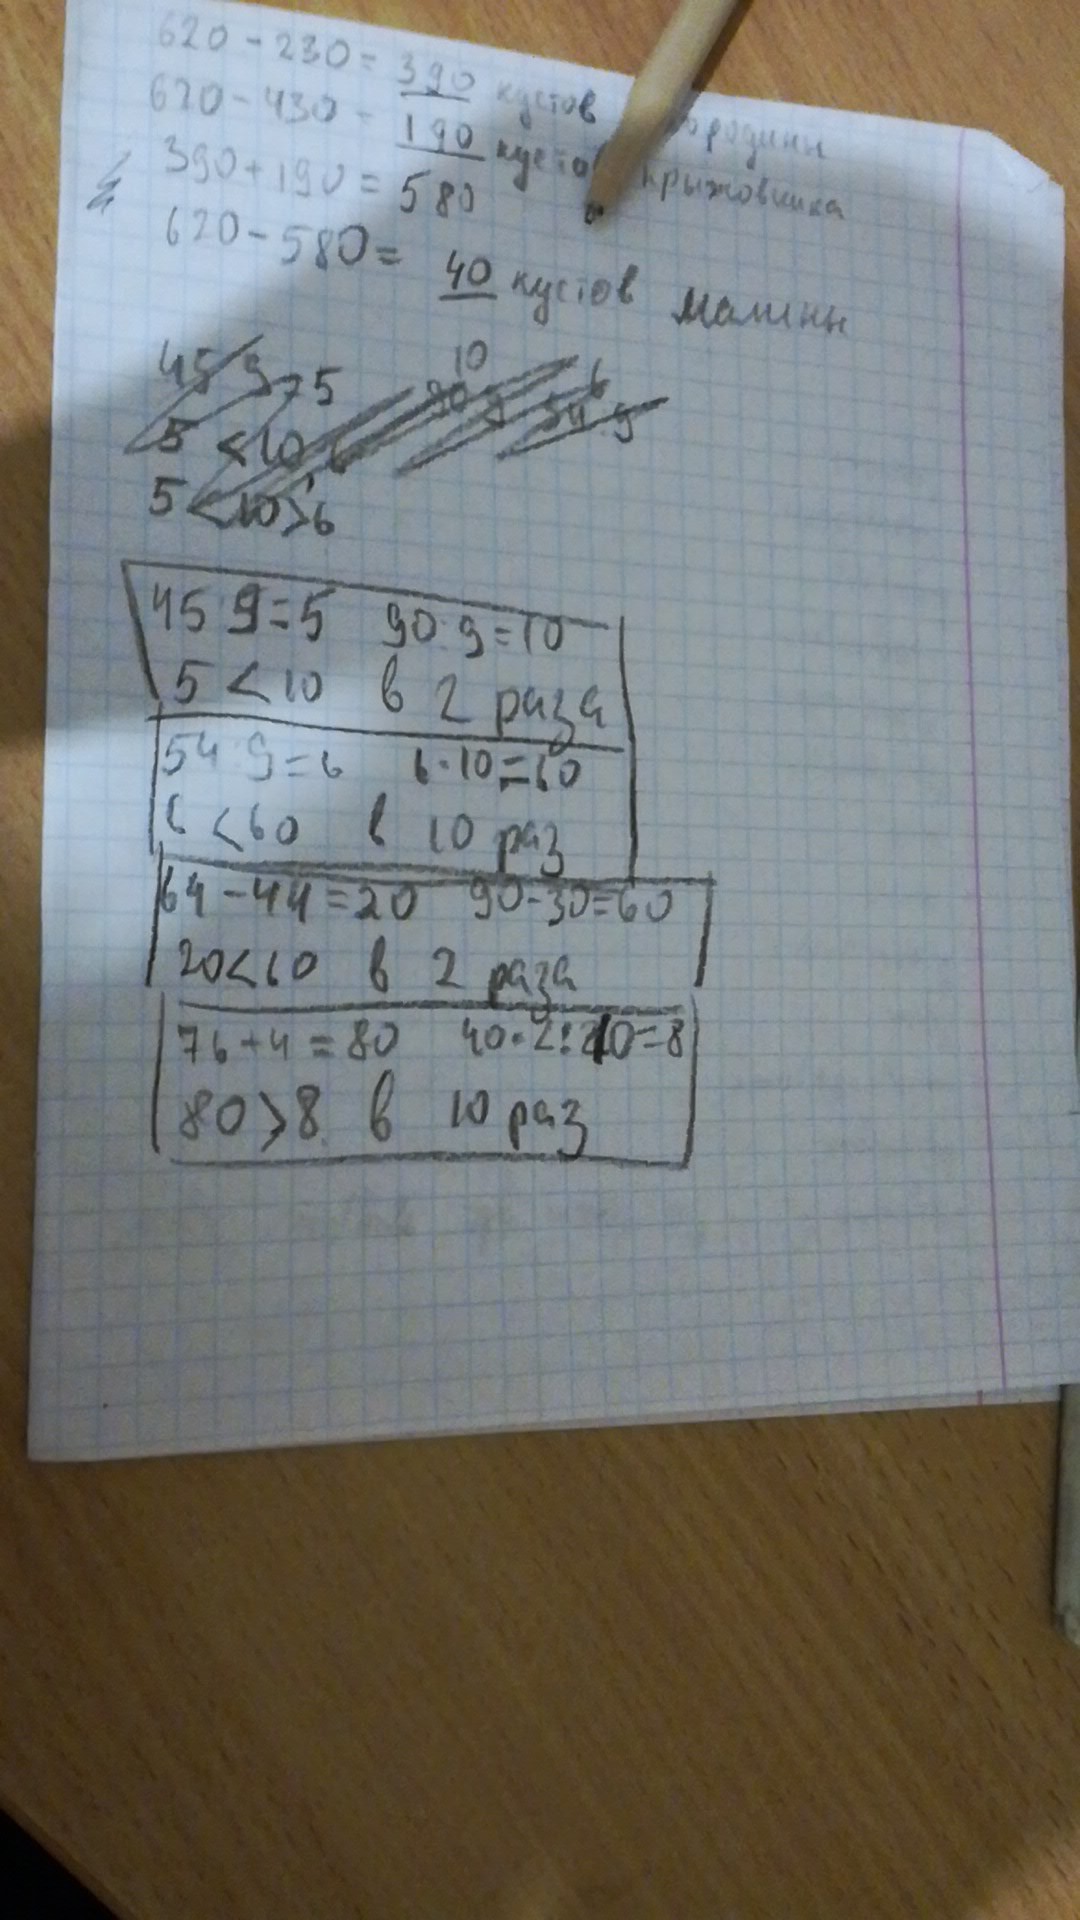 620 - 230 = 390 кустов
620 - 430 - 190 кустов крыжовника
390 + 190 = 580
620 - 580 = 40 кустов малины
5 < 10 > 6
45 : 9 = 5 90 : 9 = 10
5 < 10 в 2 раза
54 : 9 = 6 6 · 10 = 60
6 < 60 в 10 раз
64 - 44 = 20 90 - 30 = 60
20 < 60 в 2 раза
76 + 4 = 80 40 · 2 : 10 = 8
80 > 8 в 10 раз